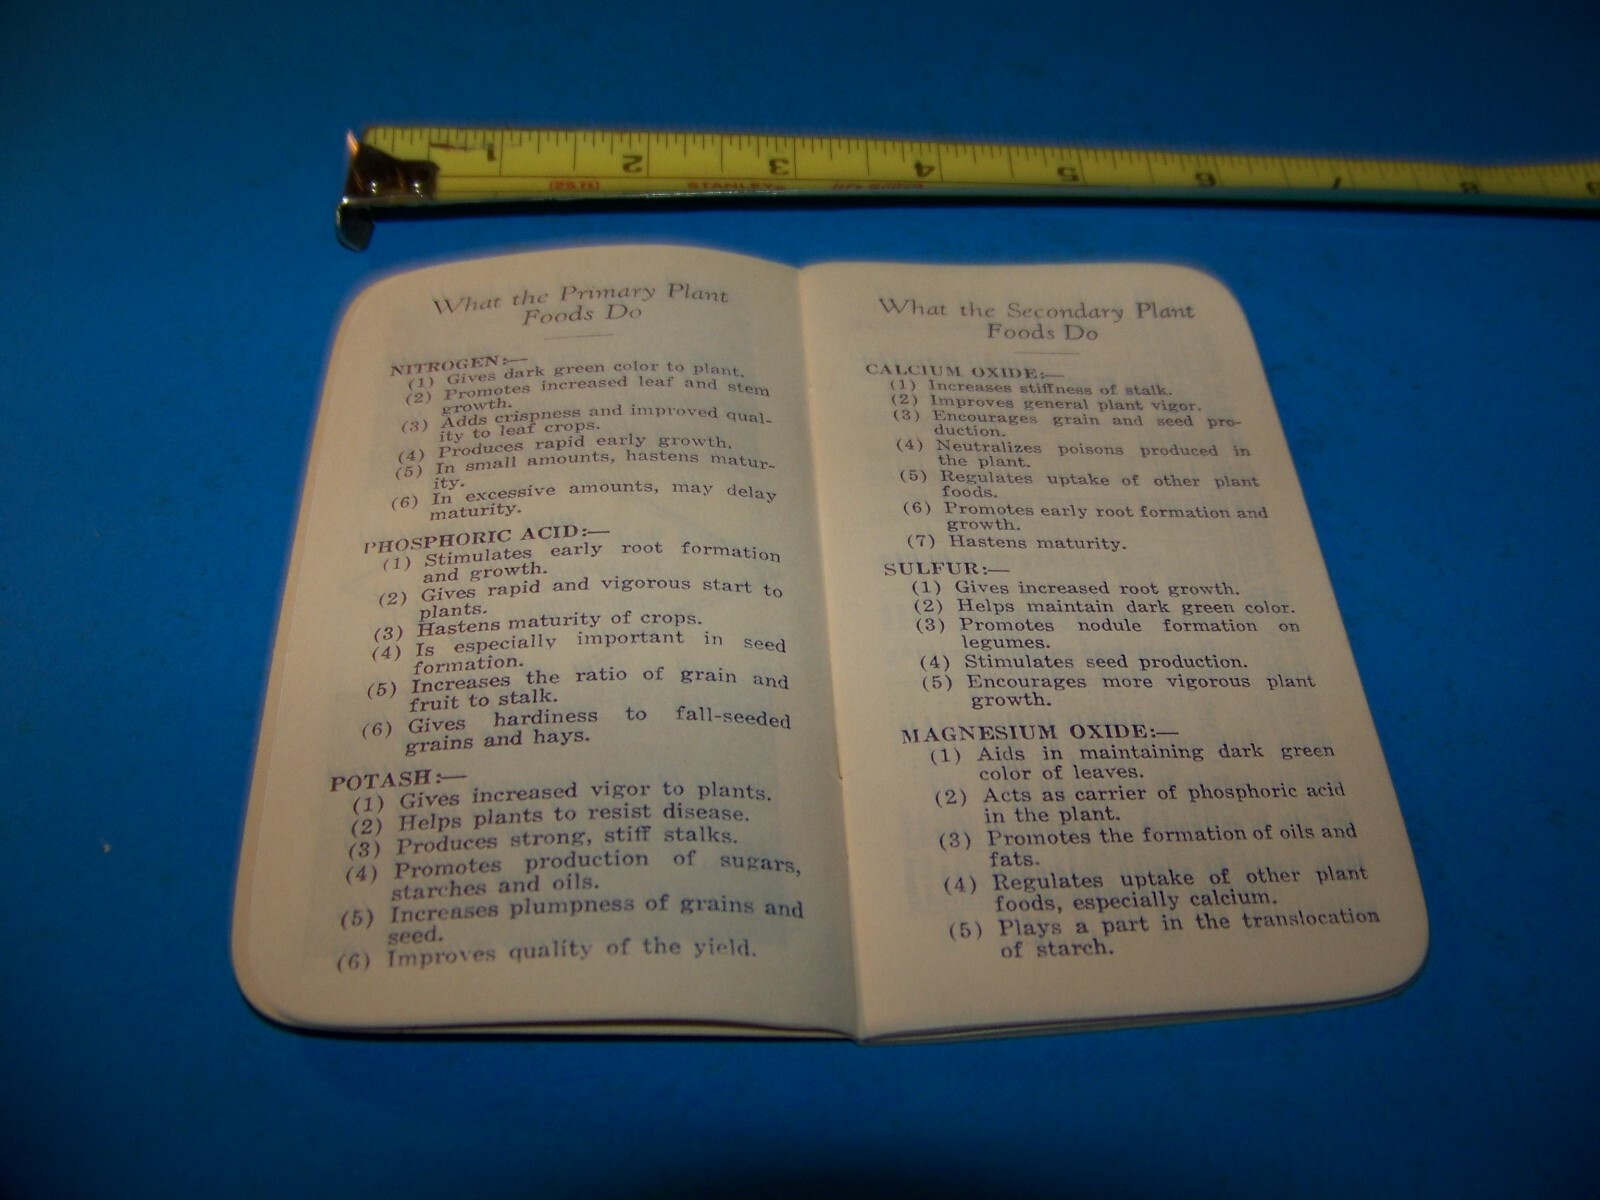 1 2 3 4 5 6 7 8 9
25 ft STANLEY®
What the Primary Plant
Foods Do
NITROGEN:—
(1) Gives dark green color to plant.
(2) Promotes increased leaf and stem
growth.
(3) Adds crispness and improved qual-
ity to leaf crops.
(4) Produces rapid early growth.
(5) In small amounts, hastens matur-
ity.
(6) In excessive amounts, may delay
maturity.
PHOSPHORIC ACID:—
(1) Stimulates early root formation
and growth.
(2) Gives rapid and vigorous start to
plants.
(3) Hastens maturity of crops.
(4) Is especially important in seed
formation.
(5) Increases the ratio of grain and
fruit to stalk.
(6) Gives hardiness to fall-seeded
grains and hays.
POTASH:—
(1) Gives increased vigor to plants.
(2) Helps plants to resist disease.
(3) Produces strong, stiff stalks.
(4) Promotes production of sugars,
starches and oils.
(5) Increases plumpness of grains and
seed.
(6) Improves quality of the yield.
What the Secondary Plant
Foods Do
CALCIUM OXIDE:—
(1) Increases stiffness of stalk.
(2) Improves general plant vigor.
(3) Encourages grain and seed pro-
duction.
(4) Neutralizes poisons produced in
the plant.
(5) Regulates uptake of other plant
foods.
(6) Promotes early root formation and
growth.
(7) Hastens maturity.
SULFUR:—
(1) Gives increased root growth.
(2) Helps maintain dark green color.
(3) Promotes nodule formation on
legumes.
(4) Stimulates seed production.
(5) Encourages more vigorous plant
growth.
MAGNESIUM OXIDE:—
(1) Aids in maintaining dark green
color of leaves.
(2) Acts as carrier of phosphoric acid
in the plant.
(3) Promotes the formation of oils and
fats.
(4) Regulates uptake of other plant
foods, especially calcium.
(5) Plays a part in the translocation
of starch.